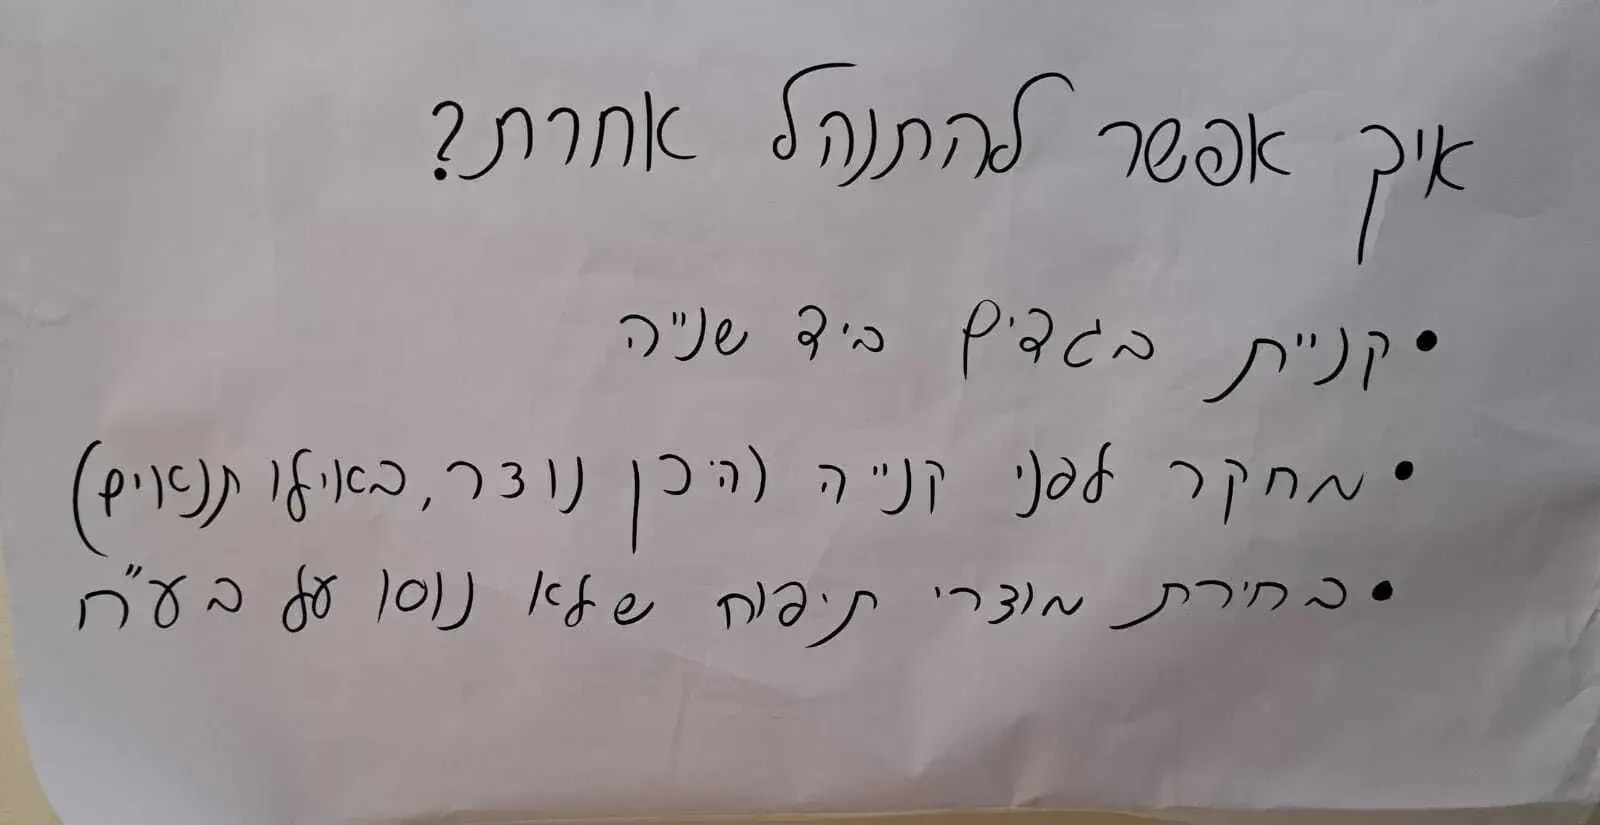 איך אפשר להתנהל אחרת?
• קניית בגדים ביד שנייה
• מחקר לפני קנייה (היכן נוצר, באילו תנאים)
• בחירת מוצרי תיפוח שלא נוסו על בע"ח